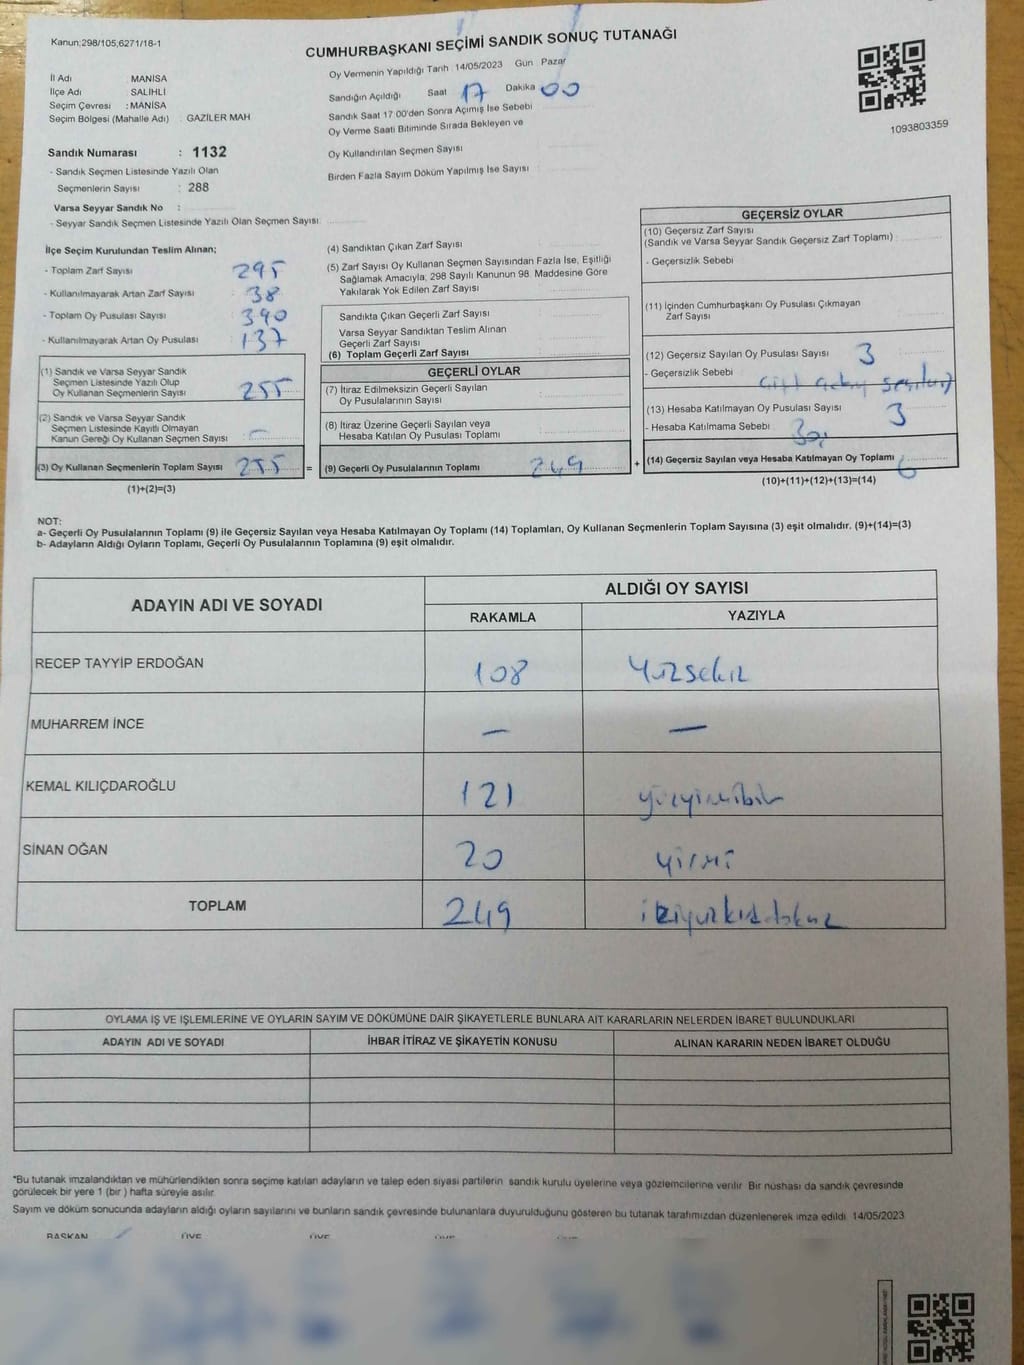 Kanun;298/105;6271/18-1
CUMHURBAŞKANI SEÇİMİ SANDIK SONUÇ TUTANAĞI
İl Adı MANİSA
İlçe Adı SALİHLİ
Seçim Çevresi : MANİSA
Seçim Bölgesi (Mahalle Adı) : GAZİLER MAH
Oy Vermenin Yapıldığı Tarih 14/05/2023 Gün Pazar
Sandığın Açıldığı Saat 17 Dakika 00
Sandık Saat 17:00'den Sonra Açımış İse Sebebi
Oy Verme Saati Bitiminde Sırada Bekleyen ve
Oy Kullandırılan Seçmen Sayısı
Birden Fazla Sayım Döküm Yapılmış İse Sayısı :
1093803359
Sandık Numarası : 1132
- Sandık Seçmen Listesinde Yazılı Olan
Seçmenlerin Sayısı : 288
Varsa Seyyar Sandık No :
- Seyyar Sandık Seçmen Listesinde Yazılı Olan Seçmen Sayısı:
İlçe Seçim Kurulundan Teslim Alınan;
- Toplam Zarf Sayısı 295
- Kullanılmayarak Artan Zarf Sayısı : 38
- Toplam Oy Pusulası Sayısı : 390
- Kullanılmayarak Artan Oy Pusulası : 137
(1) Sandık ve Varsa Seyyar Sandık
Seçmen Listesinde Yazılı Olup
Oy Kullanan Seçmenlerin Sayısı : 255
(2) Sandık ve Varsa Seyyar Sandık
Seçmen Listesinde Kayıtlı Olmayan
Kanun Gereği Oy Kullanan Seçmen Sayısı : -
(3) Oy Kullanan Seçmenlerin Toplam Sayısı : 255
(1)+(2)=(3)
(4) Sandıktan Çıkan Zarf Sayısı
(5) Zarf Sayısı Oy Kullanan Seçmen Sayısından Fazla İse, Eşitliği
Sağlamak Amacıyla, 298 Sayılı Kanunun 98. Maddesine Göre
Yakılarak Yok Edilen Zarf Sayısı
Sandıkta Çıkan Geçerli Zarf Sayısı
Varsa Seyyar Sandıktan Teslim Alınan
Geçerli Zarf Sayısı
(6) Toplam Geçerli Zarf Sayısı
GEÇERLİ OYLAR
(7) İtiraz Edilmeksizin Geçerli Sayılan
Oy Pusulalarının Sayısı
(8) İtiraz Üzerine Geçerli Sayılan veya
Hesaba Katılan Oy Pusulası Toplamı
= (9) Geçerli Oy Pusulalarının Toplamı 249 +
GEÇERSİZ OYLAR
(10) Geçersiz Zarf Sayısı
(Sandık ve Varsa Seyyar Sandık Geçersiz Zarf Toplamı) :
- Geçersizlik Sebebi
(11) İçinden Cumhurbaşkanı Oy Pusulası Çıkmayan
Zarf Sayısı
(12) Geçersiz Sayılan Oy Pusulası Sayısı 3
- Geçersizlik Sebebi
(13) Hesaba Katılmayan Oy Pusulası Sayısı 3
- Hesaba Katılmama Sebebi
(14) Geçersiz Sayılan veya Hesaba Katılmayan Oy Toplamı 6
(10)+(11)+(12)+(13)=(14)
NOT:
a- Geçerli Oy Pusulalarının Toplamı (9) ile Geçersiz Sayılan veya Hesaba Katılmayan Oy Toplamı (14) Toplamları, Oy Kullanan Seçmenlerin Toplam Sayısına (3) eşit olmalıdır. (9)+(14)=(3)
b- Adayların Aldığı Oyların Toplamı, Geçerli Oy Pusulalarının Toplamına (9) eşit olmalıdır.
ADAYIN ADI VE SOYADI ALDIĞI OY SAYISI
RAKAMLA YAZIYLA
RECEP TAYYİP ERDOĞAN 108 Yüzsekiz
MUHARREM İNCE - -
KEMAL KILIÇDAROĞLU 121 yüzyirmibir
SİNAN OĞAN 20 yirmi
TOPLAM 249 ikiyüzkırkdokuz
OYLAMA İŞ VE İŞLEMLERİNE VE OYLARIN SAYIM VE DÖKÜMÜNE DAİR ŞİKAYETLERLE BUNLARA AİT KARARLARIN NELERDEN İBARET BULUNDUKLARI
ADAYIN ADI VE SOYADI İHBAR İTİRAZ VE ŞİKAYETİN KONUSU ALINAN KARARIN NEDEN İBARET OLDUĞU
*Bu tutanak imzalandıktan ve mühürlendikten sonra seçime katılan adayların ve talep eden siyasi partilerin sandık kurulu üyelerine veya gözlemcilerine verilir. Bir nüshası da sandık çevresinde
görülecek bir yere 1 (bir ) hafta süreyle asılır.
Sayım ve döküm sonucunda adayların aldığı oyların sayılarını ve bunların sandık çevresinde bulunanlara duyurulduğunu gösteren bu tutanak tarafımızdan düzenlenerek imza edildi. 14/05/2023
BAŞKAN ÜYE ÜYE ÜYE